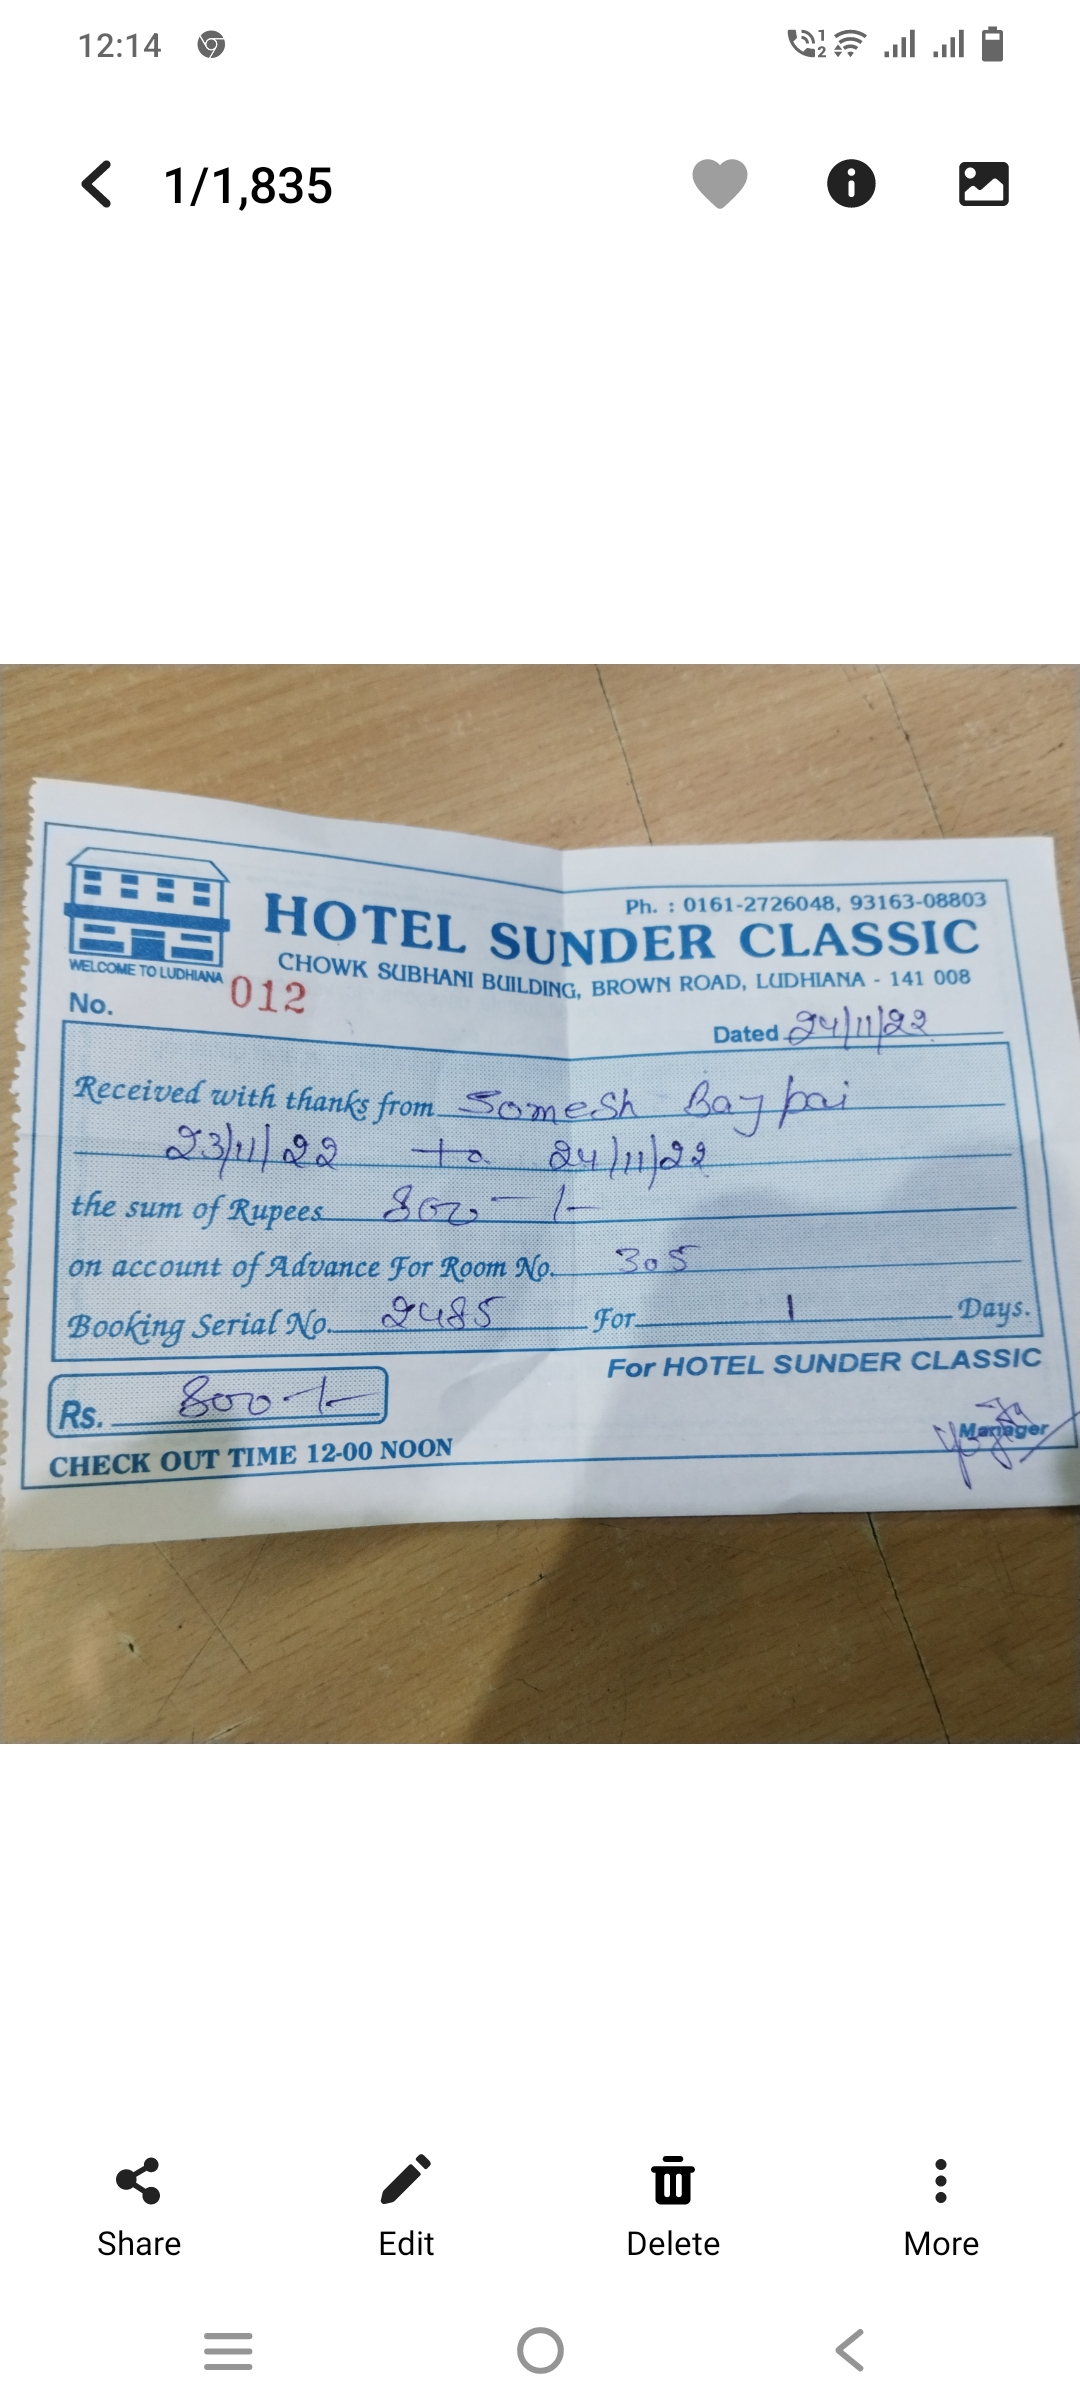 12:14
1/1,835
Ph. : 0161-2726048, 93163-08803
HOTEL SUNDER CLASSIC
CHOWK SUBHANI BUILDING, BROWN ROAD, LUDHIANA - 141 008
WELCOME TO LUDHIANA
No. 012
Dated 24/11/22
Received with thanks from Somesh Bajpai
23/11/22 to 24/11/22
the sum of Rupees 800-/-
on account of Advance For Room No. 305
Booking Serial No. 2485 For 1 Days.
For HOTEL SUNDER CLASSIC
Rs. 800-/-
Manager
CHECK OUT TIME 12-00 NOON
Share Edit Delete More